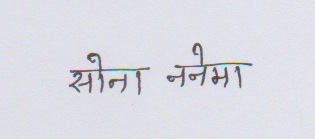 सोना ननेमा